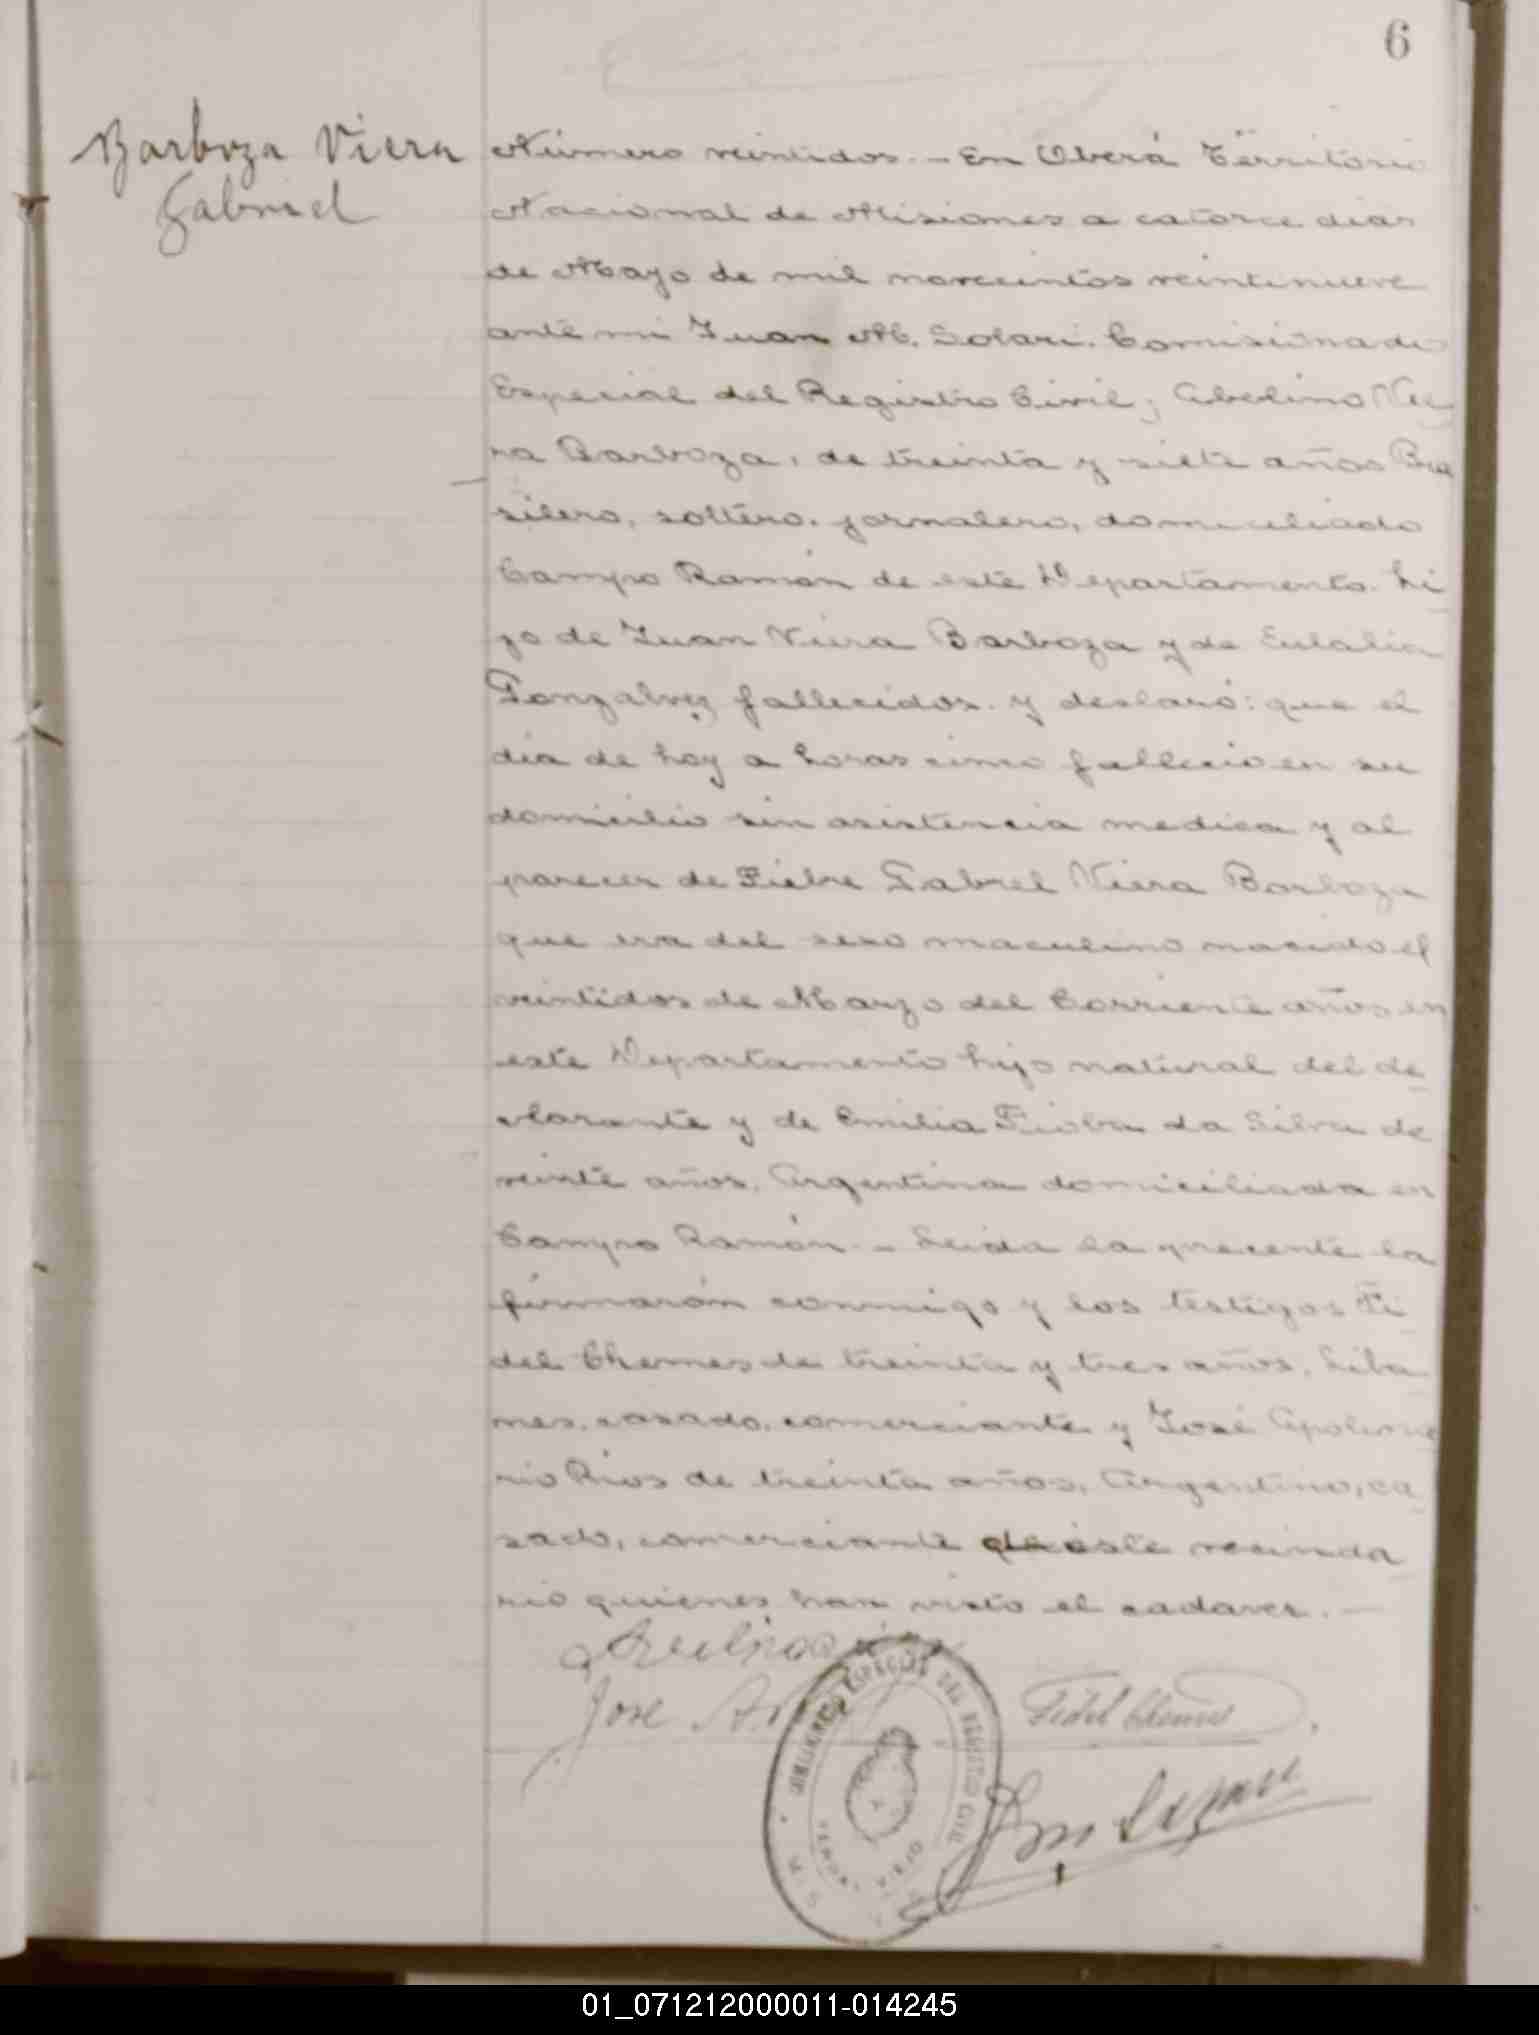 6
Barboza Viera
Gabriel
Número veintidos. — En Oberá Territorio
Nacional de Misiones a catorce dias
de Mayo de mil novecientos veintinueve
ante mi Juan M. Solari. Comisionado
Especial del Registro Civil; Abelino Vie
ra Barboza, de treinta y siete años Bra
silero, soltero, jornalero, domiciliado
Campo Ramón de este Departamento. hi
jo de Juan Viera Barboza y de Eulalia
Gonzalvez fallecidos. y declaró: que el
dia de hoy a horas cinco fallecio en su
domicilio sin asistencia medica y al
parecer de Fiebre Gabrel Viera Barboza
que era del sexo maculino nacido el
veintidos de Marzo del Corriente años en
este Departamento hijo natural del de
clarante y de Emilia da Silva de
veinte años, Argentina domiciliada en
Campo Ramón. — Leida la precente la
firmarón conmigo y los testigos Fi
del Chemes de treinta y tres años, Liba
nes, casado, comerciante y José Apolina
rio Rios de treinta años, Argentino, ca
sado, comerciante de este vecinda
rio quienes han visto el cadaver. —
Jose A.
Fidel Chemes
COMISIONADO ESPECIAL DEL REGISTRO CIVIL
01_071212000011-014245